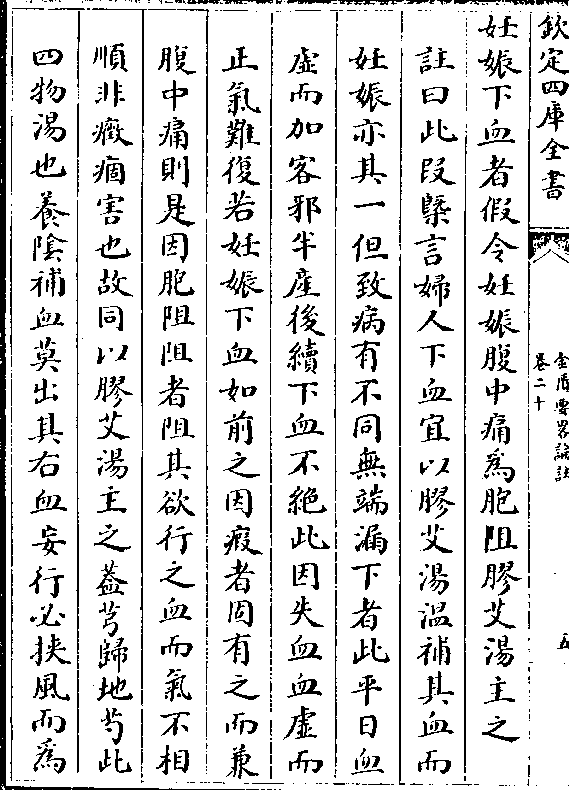 欽定四庫全書
金匱要畧論註
卷二十
五
妊娠下血者假令妊娠腹中痛為胞阻膠艾湯主之
註曰此段槩言婦人下血宜以膠艾湯溫補其血而
妊娠亦其一但致病有不同無端漏下者此平日血
虛而加客邪半產後續下血不絶此因失血血虛而
正氣難復若妊娠下血如前之因瘕者固有之而兼
腹中痛則是因胞阻阻者阻其欲行之血而氣不相
順非癥痼害也故同以膠艾湯主之葢芎歸地芍此
四物湯也養陰補血莫出其右血妄行必挾風而為